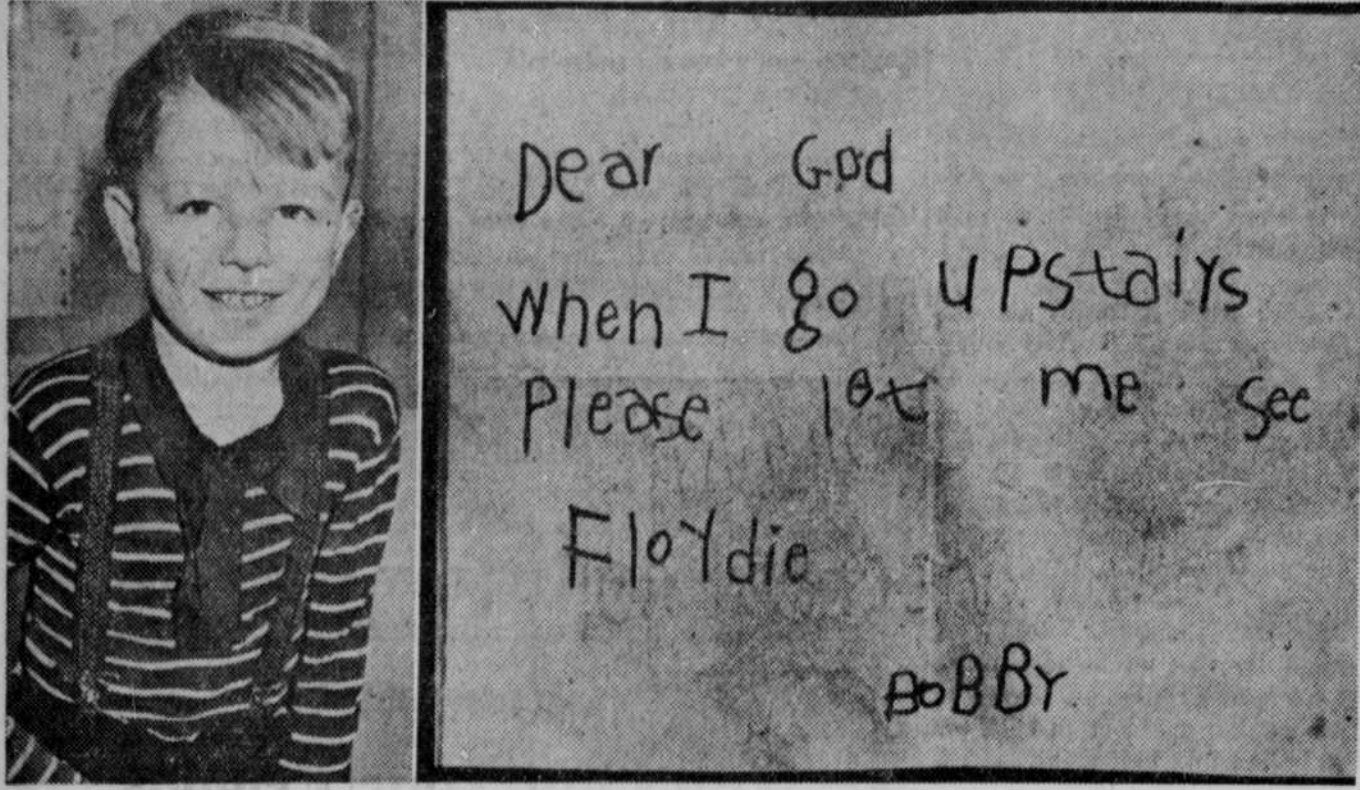 Dear God
When I go upstaiys
Please let me see
Floydie
BoBBy